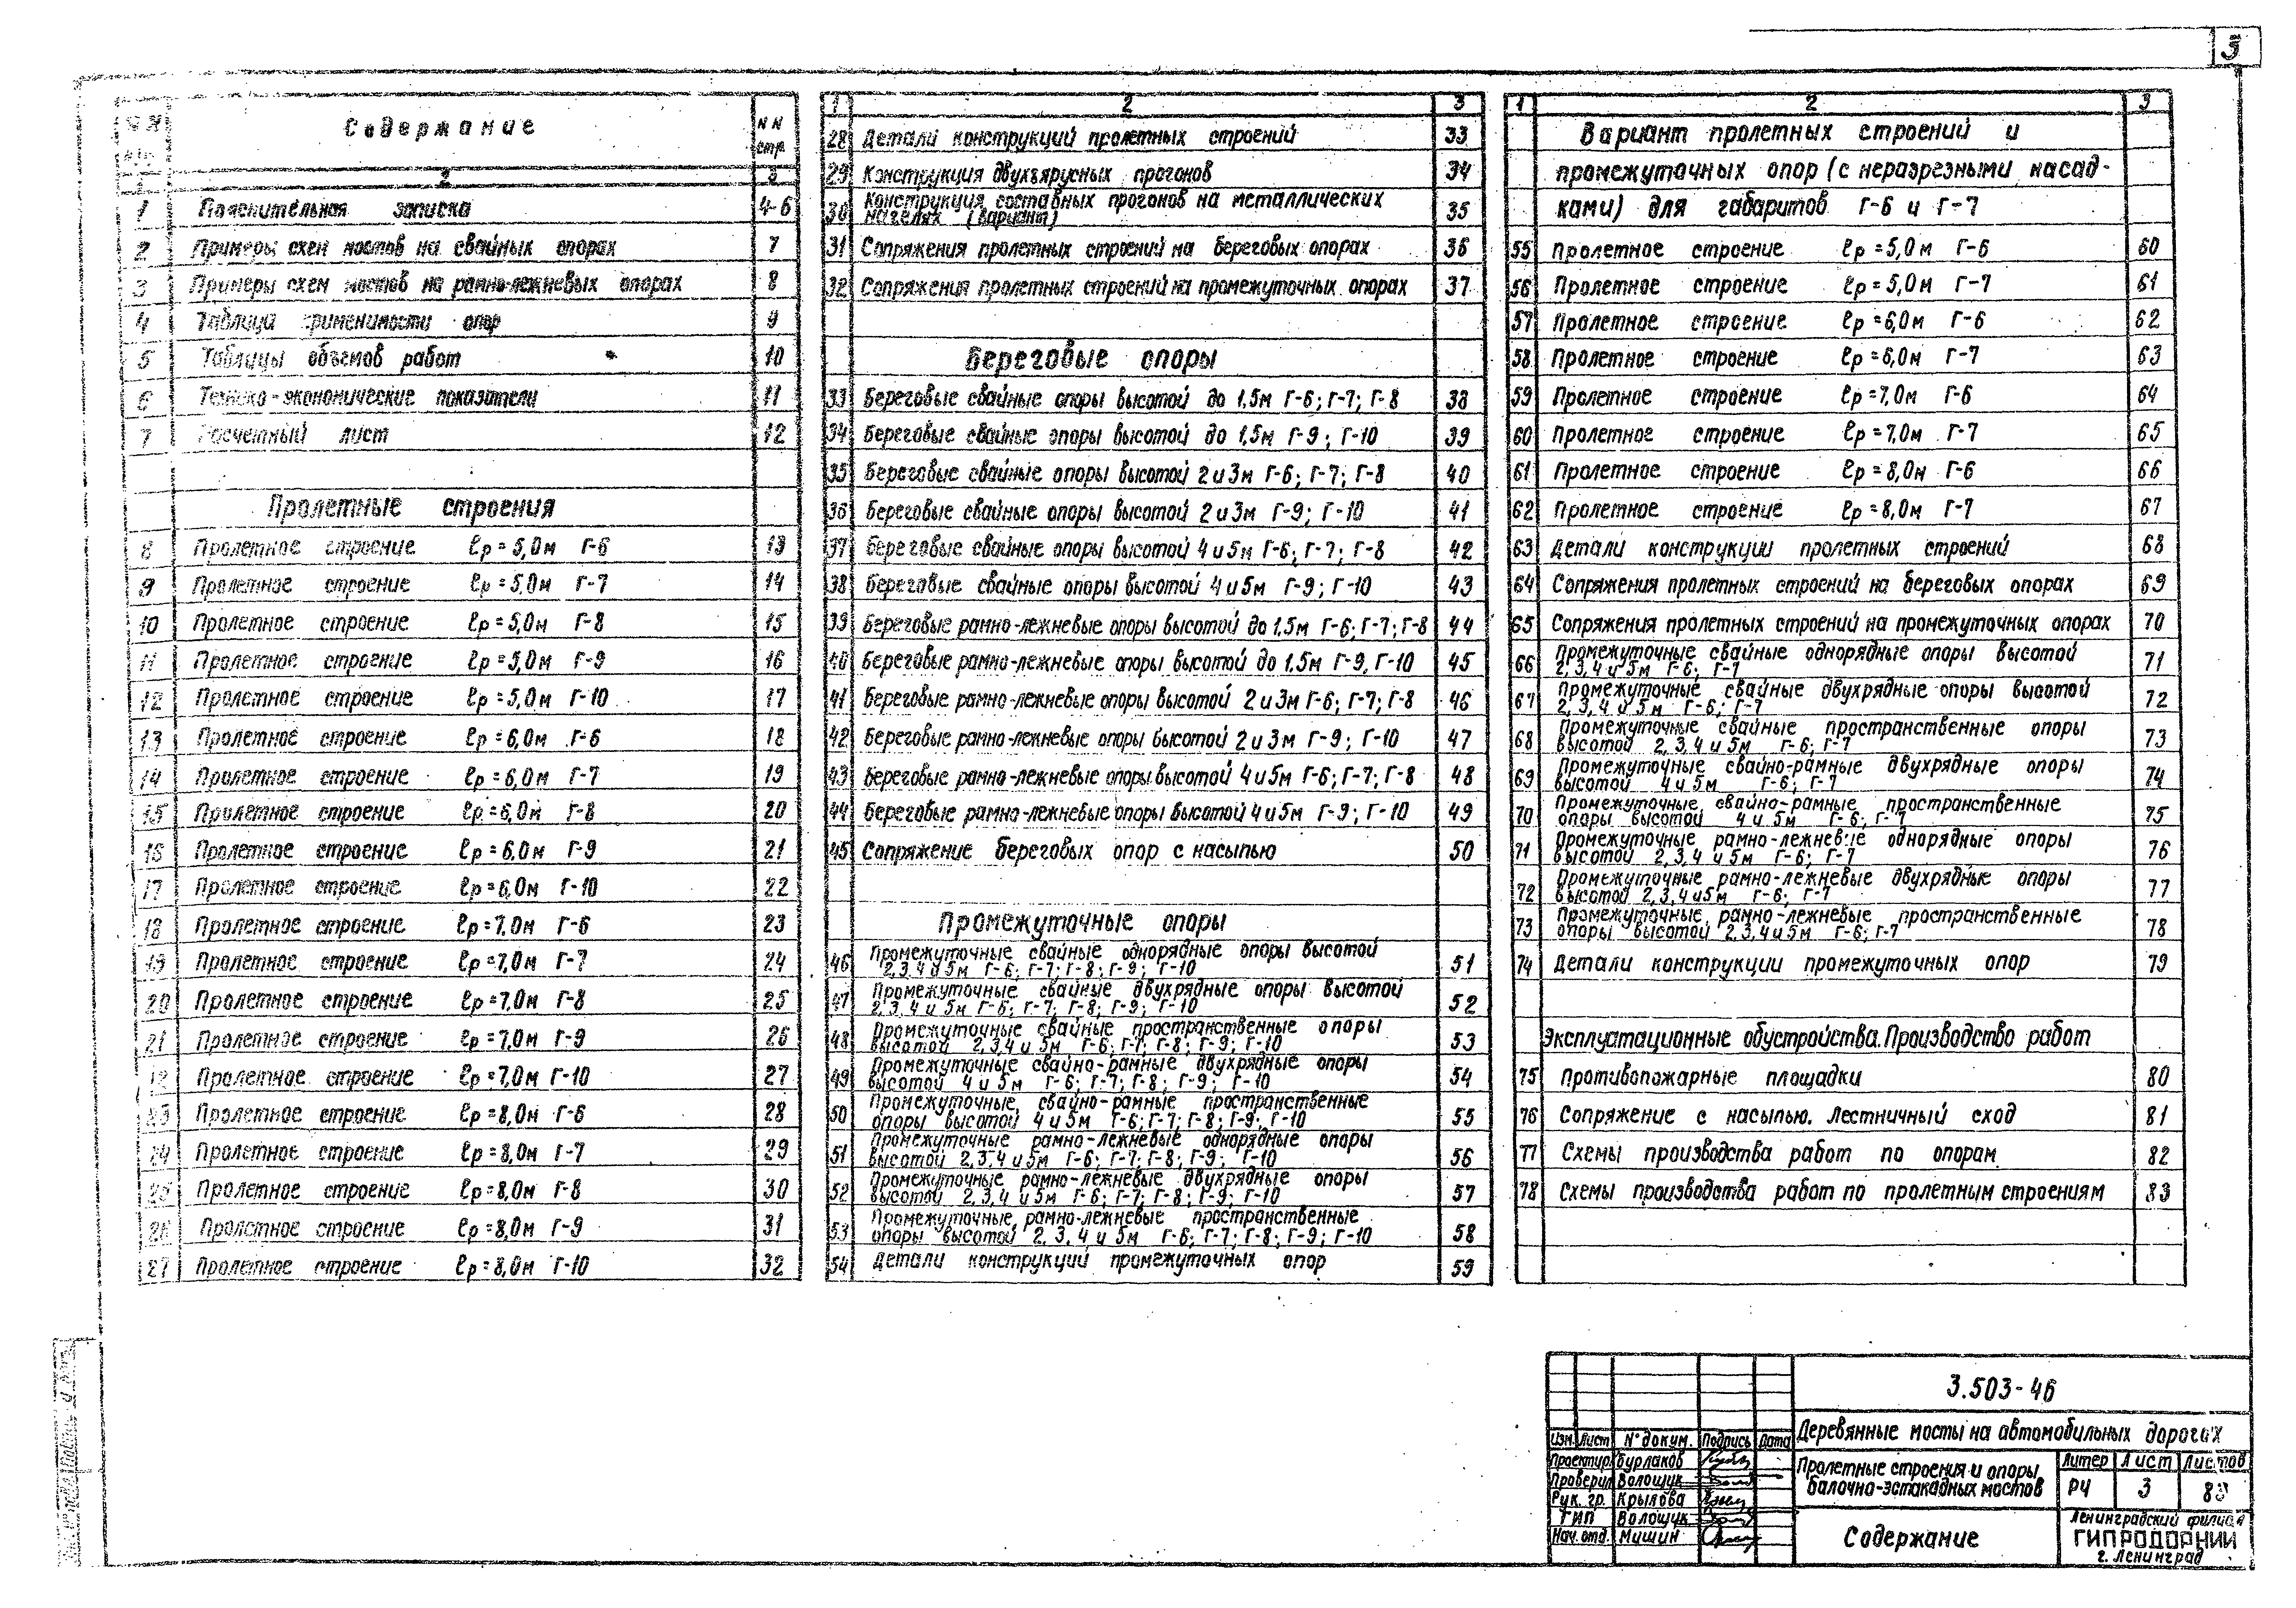 3
Содержание
N N
стр
2
3
1 Пояснительная записка 4-6
2 Примеры схем мостов на свайных опорах 7
3 Примеры схем мостов на рамно-лежневых опорах 8
4 Таблица применимости опор 9
5 Таблицы объемов работ 10
6 Технико-экономические показатели 11
7 Расчетный лист 12
Пролетные строения
8 Пролетное строение ℓр=5,0м Г-6 13
9 Пролетное строение ℓр=5,0м Г-7 14
10 Пролетное строение ℓр=5,0м Г-8 15
11 Пролетное строение ℓр=5,0м Г-9 16
12 Пролетное строение ℓр=5,0м Г-10 17
13 Пролетное строение ℓр=6,0м Г-6 18
14 Пролетное строение ℓр=6,0м Г-7 19
15 Пролетное строение ℓр=6,0м Г-8 20
16 Пролетное строение ℓр=6,0м Г-9 21
17 Пролетное строение ℓр=6,0м Г-10 22
18 Пролетное строение ℓр=7,0м Г-6 23
19 Пролетное строение ℓр=7,0м Г-7 24
20 Пролетное строение ℓр=7,0м Г-8 25
21 Пролетное строение ℓр=7,0м Г-9 26
Пролетное строение ℓр=7,0м Г-10 27
23 Пролетное строение ℓр=8,0м Г-6 28
24 Пролетное строение ℓр=8,0м Г-7 29
25 Пролетное строение ℓр=8,0м Г-8 30
26 Пролетное строение ℓр=8,0м Г-9 31
27 Пролетное строение ℓр=8,0м Г-10 32
1 2 3
28 Детали конструкций пролетных строений 33
29 Конструкция двухъярусных прогонов 34
30 Конструкция составных прогонов на металлических
нагелях (вариант) 35
31 Сопряжения пролетных строений на береговых опорах 36
32 Сопряжения пролетных строений на промежуточных опорах 37
Береговые опоры
33 Береговые свайные опоры высотой до 1,5м Г-6; Г-7; Г-8 38
34 Береговые свайные опоры высотой до 1,5м Г-9; Г-10 39
35 Береговые свайные опоры высотой 2 и 3м Г-6; Г-7; Г-8 40
36 Береговые свайные опоры высотой 2 и 3м Г-9; Г-10 41
37 Береговые свайные опоры высотой 4 и 5м Г-6; Г-7; Г-8 42
38 Береговые свайные опоры высотой 4 и 5м Г-9; Г-10 43
39 Береговые рамно-лежневые опоры высотой до 1,5м Г-6; Г-7; Г-8 44
40 Береговые рамно-лежневые опоры высотой до 1,5м Г-9, Г-10 45
41 Береговые рамно-лежневые опоры высотой 2 и 3м Г-6; Г-7; Г-8 46
42 Береговые рамно-лежневые опоры высотой 2 и 3м Г-9; Г-10 47
43 Береговые рамно-лежневые опоры высотой 4 и 5м Г-6; Г-7; Г-8 48
44 Береговые рамно-лежневые опоры высотой 4 и 5м Г-9; Г-10 49
45 Сопряжение береговых опор с насыпью 50
Промежуточные опоры
46 Промежуточные свайные однорядные опоры высотой
2,3,4 и 5м Г-6; Г-7; Г-8; Г-9; Г-10 51
47 Промежуточные свайные двухрядные опоры высотой
2,3,4 и 5м Г-6; Г-7; Г-8; Г-9; Г-10 52
48 Промежуточные свайные пространственные опоры
высотой 2,3,4 и 5м Г-6; Г-7; Г-8; Г-9; Г-10 53
49 Промежуточные свайно-рамные двухрядные опоры
высотой 4 и 5м Г-6; Г-7; Г-8; Г-9; Г-10 54
50 Промежуточные свайно-рамные пространственные
опоры высотой 4 и 5м Г-6; Г-7; Г-8; Г-9; Г-10 55
51 Промежуточные рамно-лежневые однорядные опоры
высотой 2,3,4 и 5м Г-6; Г-7; Г-8; Г-9; Г-10 56
52 Промежуточные рамно-лежневые двухрядные опоры
высотой 2,3,4 и 5м Г-6; Г-7; Г-8; Г-9; Г-10 57
53 Промежуточные рамно-лежневые пространственные
опоры высотой 2,3,4 и 5м Г-6; Г-7; Г-8; Г-9; Г-10 58
54 Детали конструкций промежуточных опор 59
1 2 3
Вариант пролетных строений и
промежуточных опор (с неразрезными насад-
ками) для габаритов Г-6 и Г-7
55 Пролетное строение ℓр=5,0м Г-6 60
56 Пролетное строение ℓр=5,0м Г-7 61
57 Пролетное строение ℓр=6,0м Г-6 62
58 Пролетное строение ℓр=6,0м Г-7 63
59 Пролетное строение ℓр=7,0м Г-6 64
60 Пролетное строение ℓр=7,0м Г-7 65
61 Пролетное строение ℓр=8,0м Г-6 66
62 Пролетное строение ℓр=8,0м Г-7 67
63 Детали конструкции пролетных строений 68
64 Сопряжения пролетных строений на береговых опорах 69
65 Сопряжения пролетных строений на промежуточных опорах 70
66 Промежуточные свайные однорядные опоры высотой
2,3,4 и 5м Г-6; Г-7 71
67 Промежуточные свайные двухрядные опоры высотой
2,3,4 и 5м Г-6; Г-7 72
68 Промежуточные свайные пространственные опоры
высотой 2,3,4 и 5м Г-6; Г-7 73
69 Промежуточные свайно-рамные двухрядные опоры
высотой 4 и 5м Г-6; Г-7 74
70 Промежуточные свайно-рамные пространственные
опоры высотой 4 и 5м Г-6; Г-7 75
71 Промежуточные рамно-лежневые однорядные опоры
высотой 2,3,4 и 5м Г-6; Г-7 76
72 Промежуточные рамно-лежневые двухрядные опоры
высотой 2,3,4 и 5м Г-6; Г-7 77
73 Промежуточные рамно-лежневые пространственные
опоры высотой 2,3,4 и 5м Г-6; Г-7 78
74 Детали конструкции промежуточных опор 79
Эксплуатационные обустройства. Производство работ
75 Противопожарные площадки 80
76 Сопряжение с насыпью. Лестничный сход 81
77 Схемы производства работ по опорам 82
78 Схемы производства работ по пролетным строениям 83
3.503-46
Деревянные мосты на автомобильных дорогах
Изм. Лист N° докум. Подпись Дата
Проектир. Бурлаков
Проверил Волощук
Рук. гр. Крылова
ГИП Волощук
Нач. отд. Мишин
Пролетные строения и опоры
балочно-эстакадных мостов
Литер Лист Листов
РЧ 3 83
Содержание
Ленинградский филиал
ГИПРОДОРНИИ
г. Ленинград